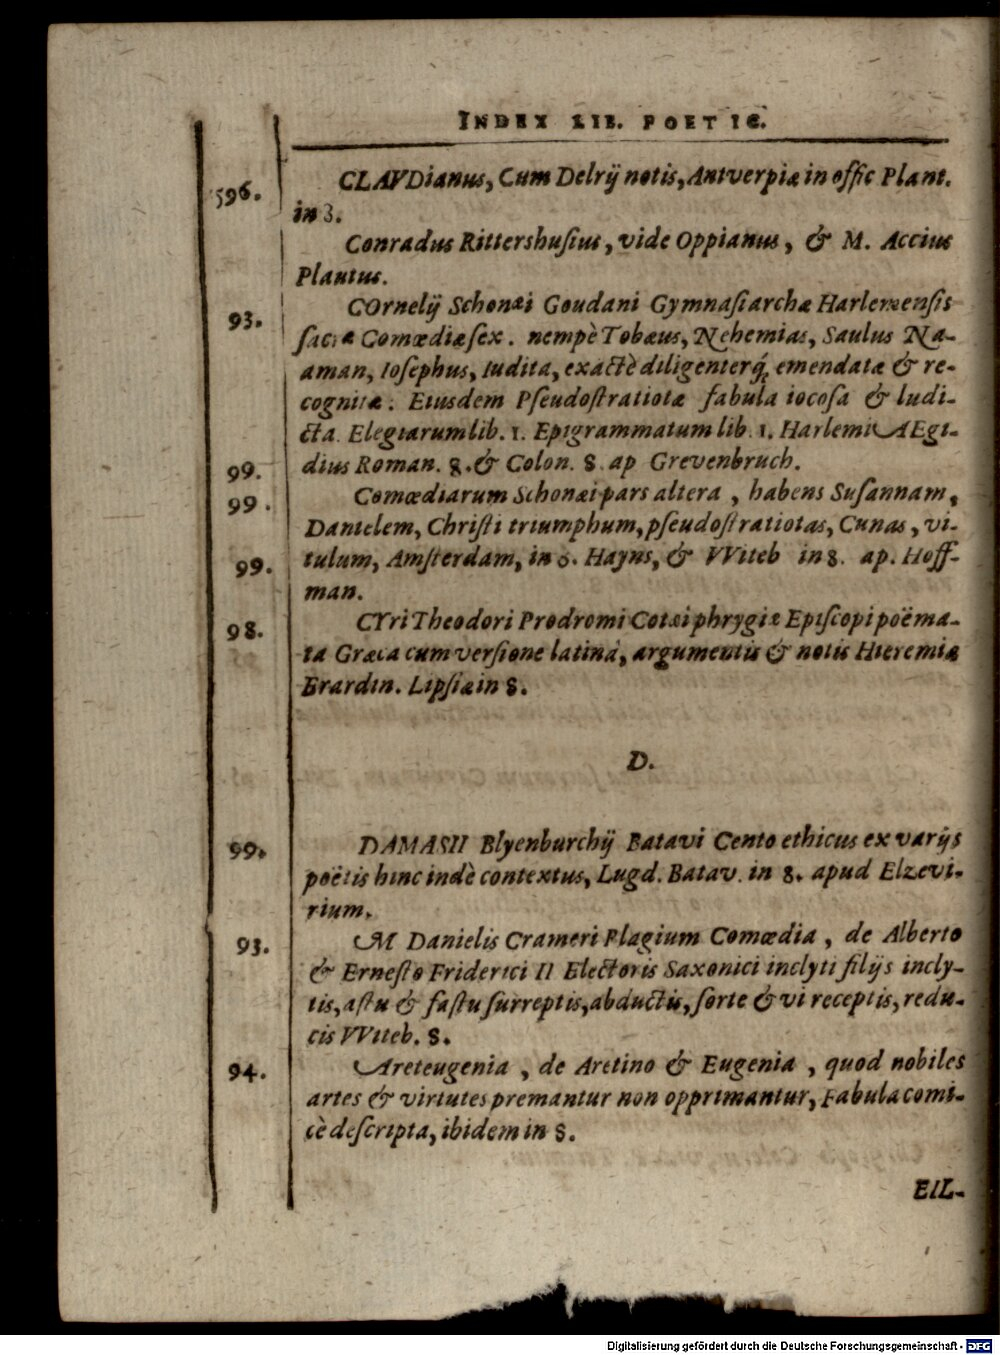 INDEX LIB. POETIC.
596. CLAVDianus, Cum Delrij notis, Antverpiæ in offic Plant.
in 3.
Conradus Rittershuſius, vide Oppianus, & M. Accius
Plautus.
93. COrnelij Schonæi Goudani Gymnaſiarchæ Harlemenſis
ſacræ Comœdiæ ſex. nempè Tobæus, Nehemias, Saulus Na-
aman, Ioſephus, Iudita, exactè diligenterq́; emendatæ & re-
cognitæ: Eiusdem Pſeudoſtratiotæ fabula iocoſa & ludi-
cta. Elegiarum lib. 1. Epigrammatum lib. 1. Harlemi AEgi-
99. dius Roman. 8. & Colon. 8. ap Grevenbruch.
99. Comœdiarum Schonæi pars altera, habens Suſannam,
Danielem, Chriſti triumphum, pſeudoſtratiotas, Cunas, vi-
99. tulum, Amſterdam, in 6. Hayns, & VViteb in 8. ap. Hoff-
man.
98. CYri Theodori Prodromi Cotæi phrygiæ Epiſcopi poëma-
ta Græca cum verſione latina, argumentis & notis Hieremiæ
Erardin. Lipſiæ in 8.
D.
99. DAMASII Blyenburchij Batavi Cento ethicus ex varijs
poëtis hinc indè contextus, Lugd. Batav. in 8. apud Elzevi-
rium.
93. M Danielis Crameri Plagium Comœdia, de Alberto
& Erneſto Friderici II Electoris Saxonici inclyti filijs incly-
tis, aſtu & faſtu ſurreptis, abductis, ſorte & vi receptis, redu-
cis VViteb. 8.
94. Areteugenia, de Aretino & Eugenia, quod nobiles
artes & virtutes premantur non opprimantur, Fabula comi-
cè deſcripta, ibidem in 8.
EIL-
Digitalisierung gefördert durch die Deutsche Forschungsgemeinschaft - DFG